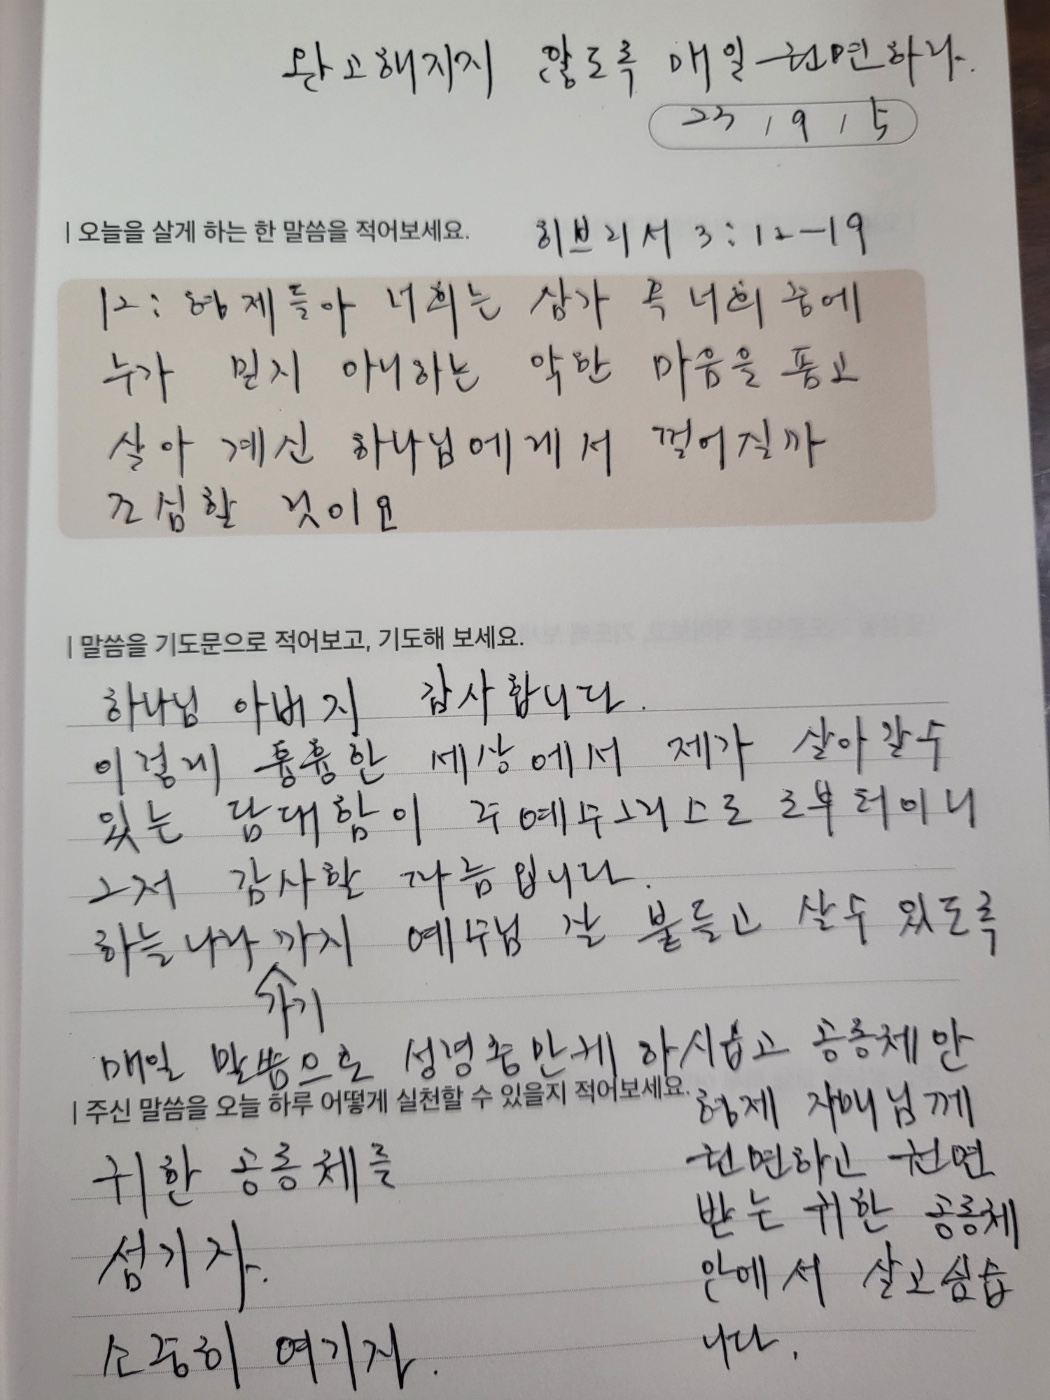 완고해지지 않도록 매일 권면하라.
23 / 9 / 5
| 오늘을 살게 하는 한 말씀을 적어보세요.
히브리서 3:12-19
12: 형제들아 너희는 삼가 혹 너희 중에
누가 믿지 아니하는 악한 마음을 품고
살아 계신 하나님에게서 떨어질까
조심할 것이요
| 말씀을 기도문으로 적어보고, 기도해 보세요.
하나님 아버지 감사합니다.
이렇게 흉흉한 세상에서 제가 살아갈수
있는 담대함이 주 예수그리스도로부터이니
그저 감사할 따름입니다.
하늘나라 까지 예수님 잘 붙들고 살수 있도록
가기
매일 말씀으로 성경충만케 하시옵고 공동체 안
형제 자매님께
권면하고 권면
받는 귀한 공동체
안에서 살고싶습
니다.
| 주신 말씀을 오늘 하루 어떻게 실천할 수 있을지 적어보세요.
귀한 공동체를
섬기자.
소중히 여기자.